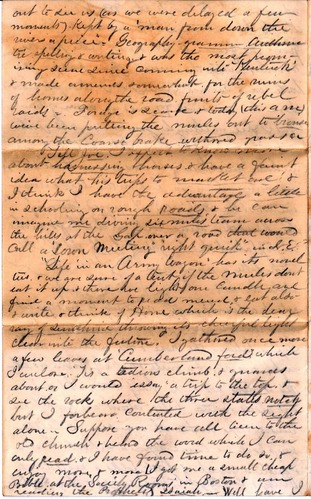 out to see us (as we were delayed a few
moments) kept by a man from down the
river a piece. Geography grammar Arithmetic
spelling & writing & was the most
seen since coming into "Kentuck"
& made amends somewhat for the
of homes along the road fruits of rebel
raids. Forage is scarce & today, this a.m.
were been putting the mules out to
among the
about harnessing horses I have a faint
idea what his trips to market are &
I think I have the advantage a little
in schooling on rough roads if he can
imagine me driving six mule team across
the hills at the Gap over a road that would
call a Town Meeting "right quick" in N.E.
"Life in an Army wagon" has its novel
ties & we are sure of a tent, if the mules dont
eat it up & there we light our candle, and
find a moment to read means, & eat also
& write & think of Home which is the
ray of sunshine throwing its cheerful light
clear into the future. I gathered once more
a few leaves at Cumberland fords which
I inclose. Tis a tedious climb &
about as I would essay a trip to the top, &
see the rock where the three states
but I forbear contented with the sight
alone. Suppose you have all been to the
old church & heard the word which I can
only read, & I have found time to do so, &
enjoy more & more. I got me a small cheap
Bible at the Society Rooms in Boston & am
reading the Prophets Isaiah. Will have I